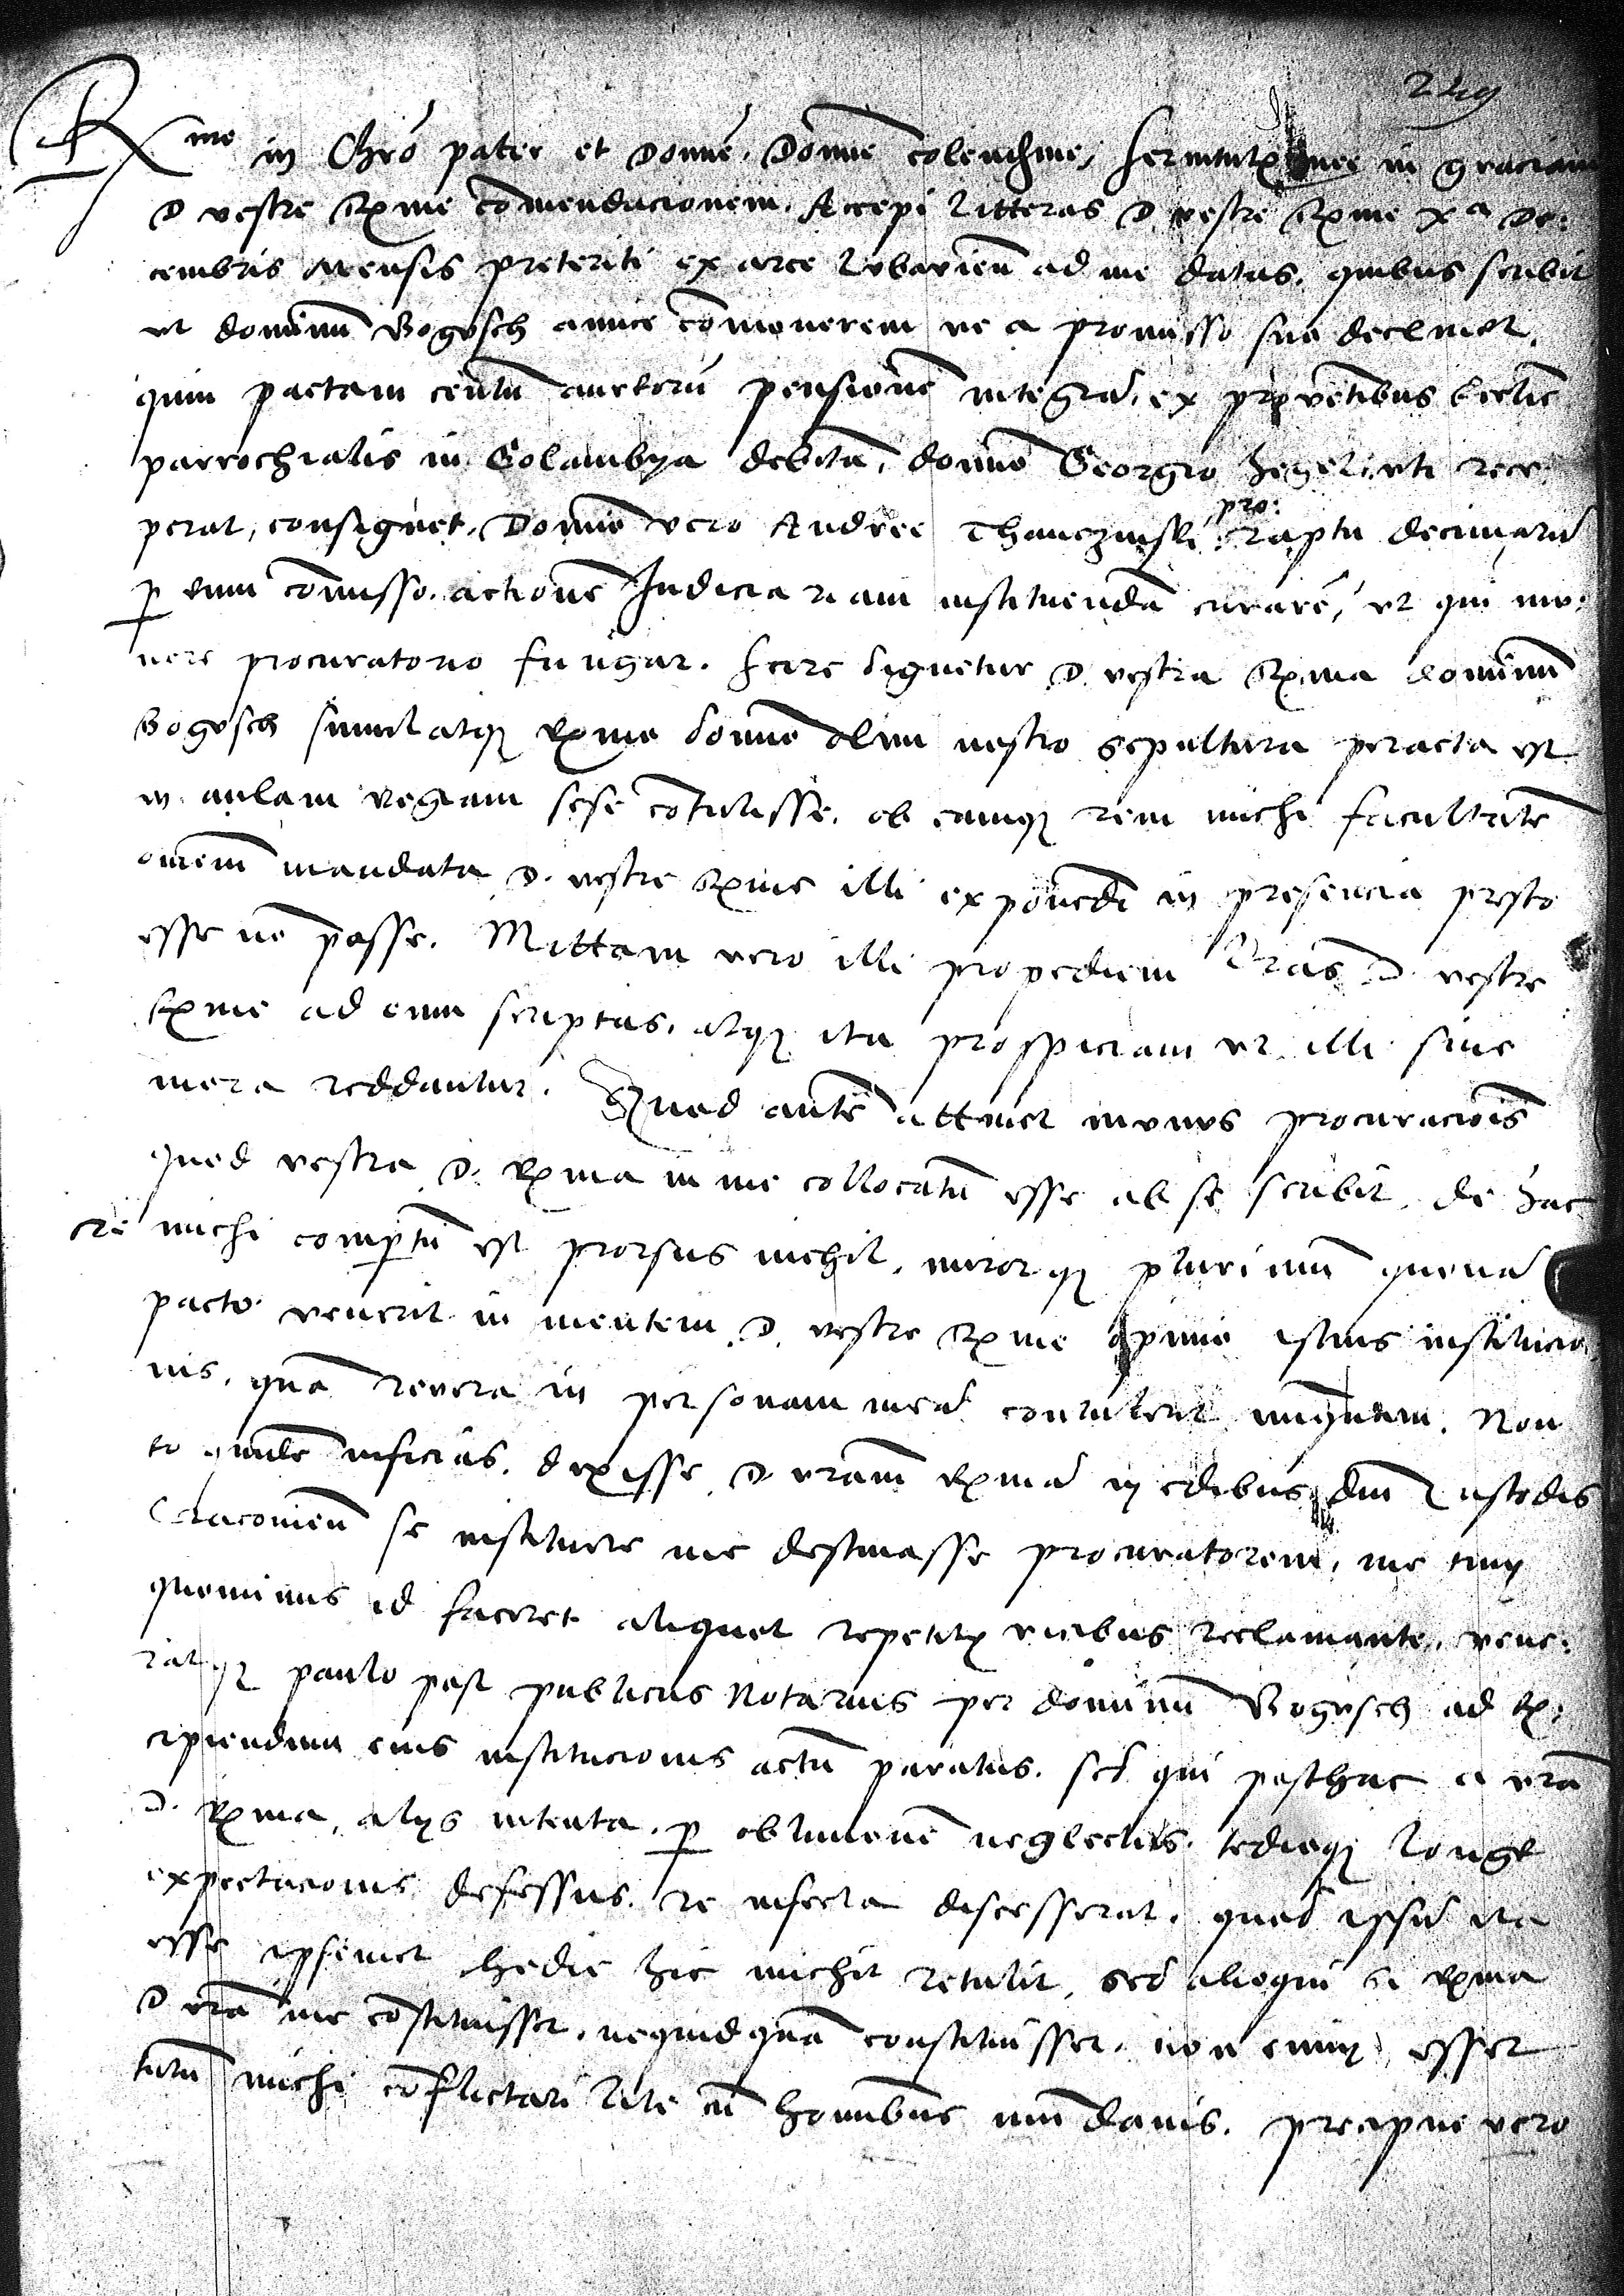 249
Rme in Chro pater et domne. Domne colendme, servitutis mee in graciam
D vestre Rme commendacionem. Accepi litteras D vestre Rme Xa De:
cembris mensis preteriti ex arce Lubavien ad me datas. quibus scribit
ut dominum Bogusch amice commonerem ne a promisso suo declinet.
quin pactam centum aureorum pensionem integram ex proventibus Ecclie
parrochialis in Golambya debitam, domno Georgio Hegel, uti rece
perat, consignet. Domno vero Andree Thanczinski pro: raptu decimarum
p eum commisso actionem Judiciariam instituendam curarem, ut qui mu:
nere procuratorio fungar. Scire dignetur D. vestra Rma dominum
Bogusch simulatque Rmo domno olim nostro sepultura peracta est
in aulam regiam sese contulisse. ob eamque rem michi facultatem
omnem mandata D. vestre Rme illi exponendi in presencia presto
esse non posse. Mittam vero illi propediem lras D. vestre
Rme ad eum scriptas. atque ita prospiciam ut illi sine
mora reddantur. Quod autem attinet munus procuracionis
quod vestra D. Rma in me collocatum esse ab se scribit, de hac
re michi compertum est prorsus nichil. mirorque plurimum quonam
pacto venerit in mentem D. vestre Rme opinio istius institucio
nis. quam revera in personam meam contulerit nunquam. Non
eo quidem inficias. dixisse D. vram Rmam in edibus dni Custodis
Cracovien se instituere me destinasse procuratorem. me tum
quominus id faceret aliquot repetitis vicibus reclamante. vene:
ratque paulo post publicus Notarius per dominum Bogusch ad ex:
cipiendum eius institucionis actum paratus. sed qui posthac a vra
D. Rma, aliis intenta. p oblivionem neglectus. tedioque longe
expectacionis defessus. re infecta discesserat. quod ipsum ita
esse ipsemet hodie hic michi retulit. sed alioqui si Rma
D vra me constituisset. nequidquam constituisset. non enim esset
tutum michi conflictari lite cum hominibus mundanis. precipue vero